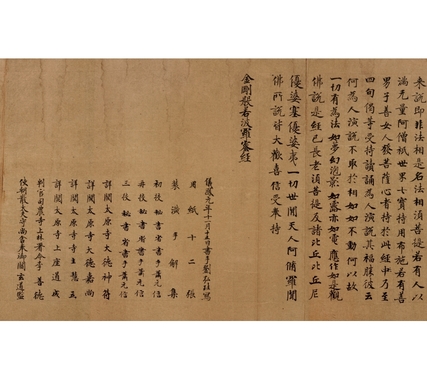 來說即非法相是名法相須菩提若有人以
滿无量阿僧祇世界七寶持用布施若有善
男子善女人發菩薩心者持於此經乃至
四句偈等受持讀誦為人演說其福勝彼云
何為人演說不取於相如如不動何以故
一切有為法如夢幻泡影如露亦如電應作如是觀
佛說是經已長老須菩提及諸比丘比丘尼
優婆塞優婆夷一切世間天人阿脩羅聞
佛所說皆大歡喜信受奉持
金剛般若波羅蜜經
儀鳳元年十一月十五日書手劉弘珪寫
用紙十二張
裝潢手解集
初校秘書省書手蕭元信
再校秘書省書手蕭元信
三校秘書省書手蕭元信
詳閱太原寺大德神符
詳閱太原寺大德嘉尚
詳閱太原寺主慧立
詳閱太原寺上座道成
判官司農寺上林署令李善德
使朝散大夫守尚舍奉御閻玄道監